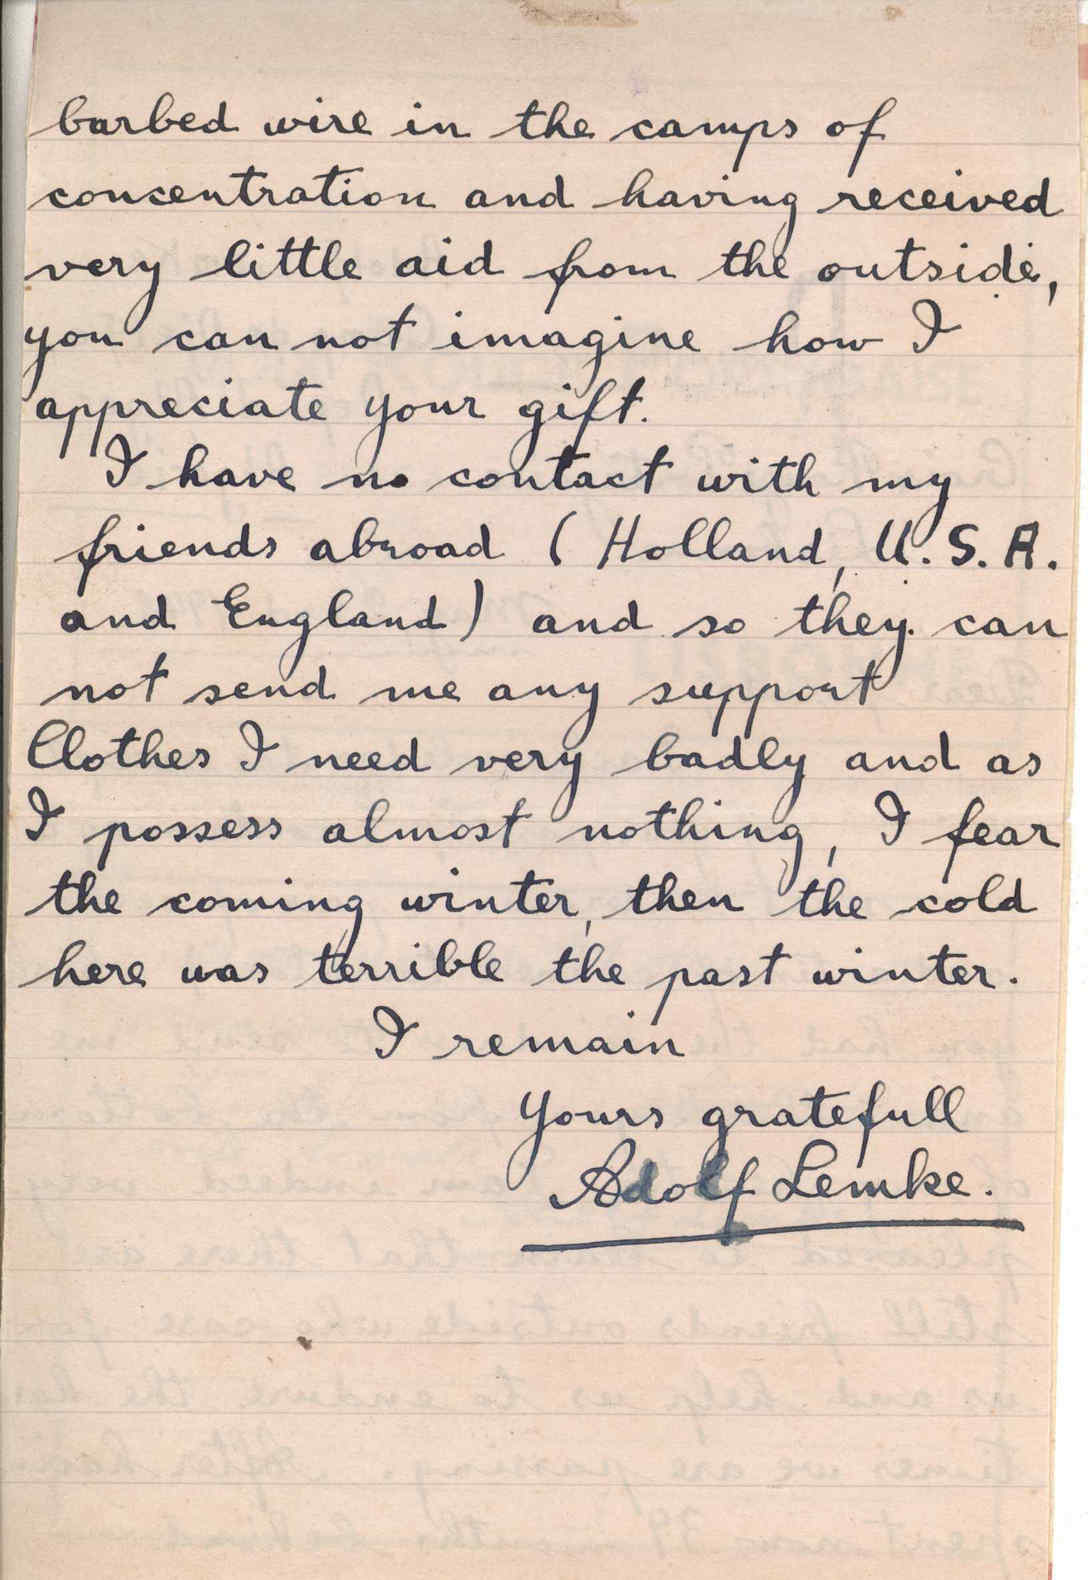 barbed wire in the camps of
concentration and having received
very little aid from the outside,
you can not imagine how I
appreciate your gift.
I have no contact with my
friends abroad (Holland, U.S.A.
and England) and so they can
not send me any support
Clothes I need very badly and as
I possess almost nothing, I fear
the coming winter, then the cold
here was terrible the past winter.
I remain
yours gratefull
Adolf Lemke.